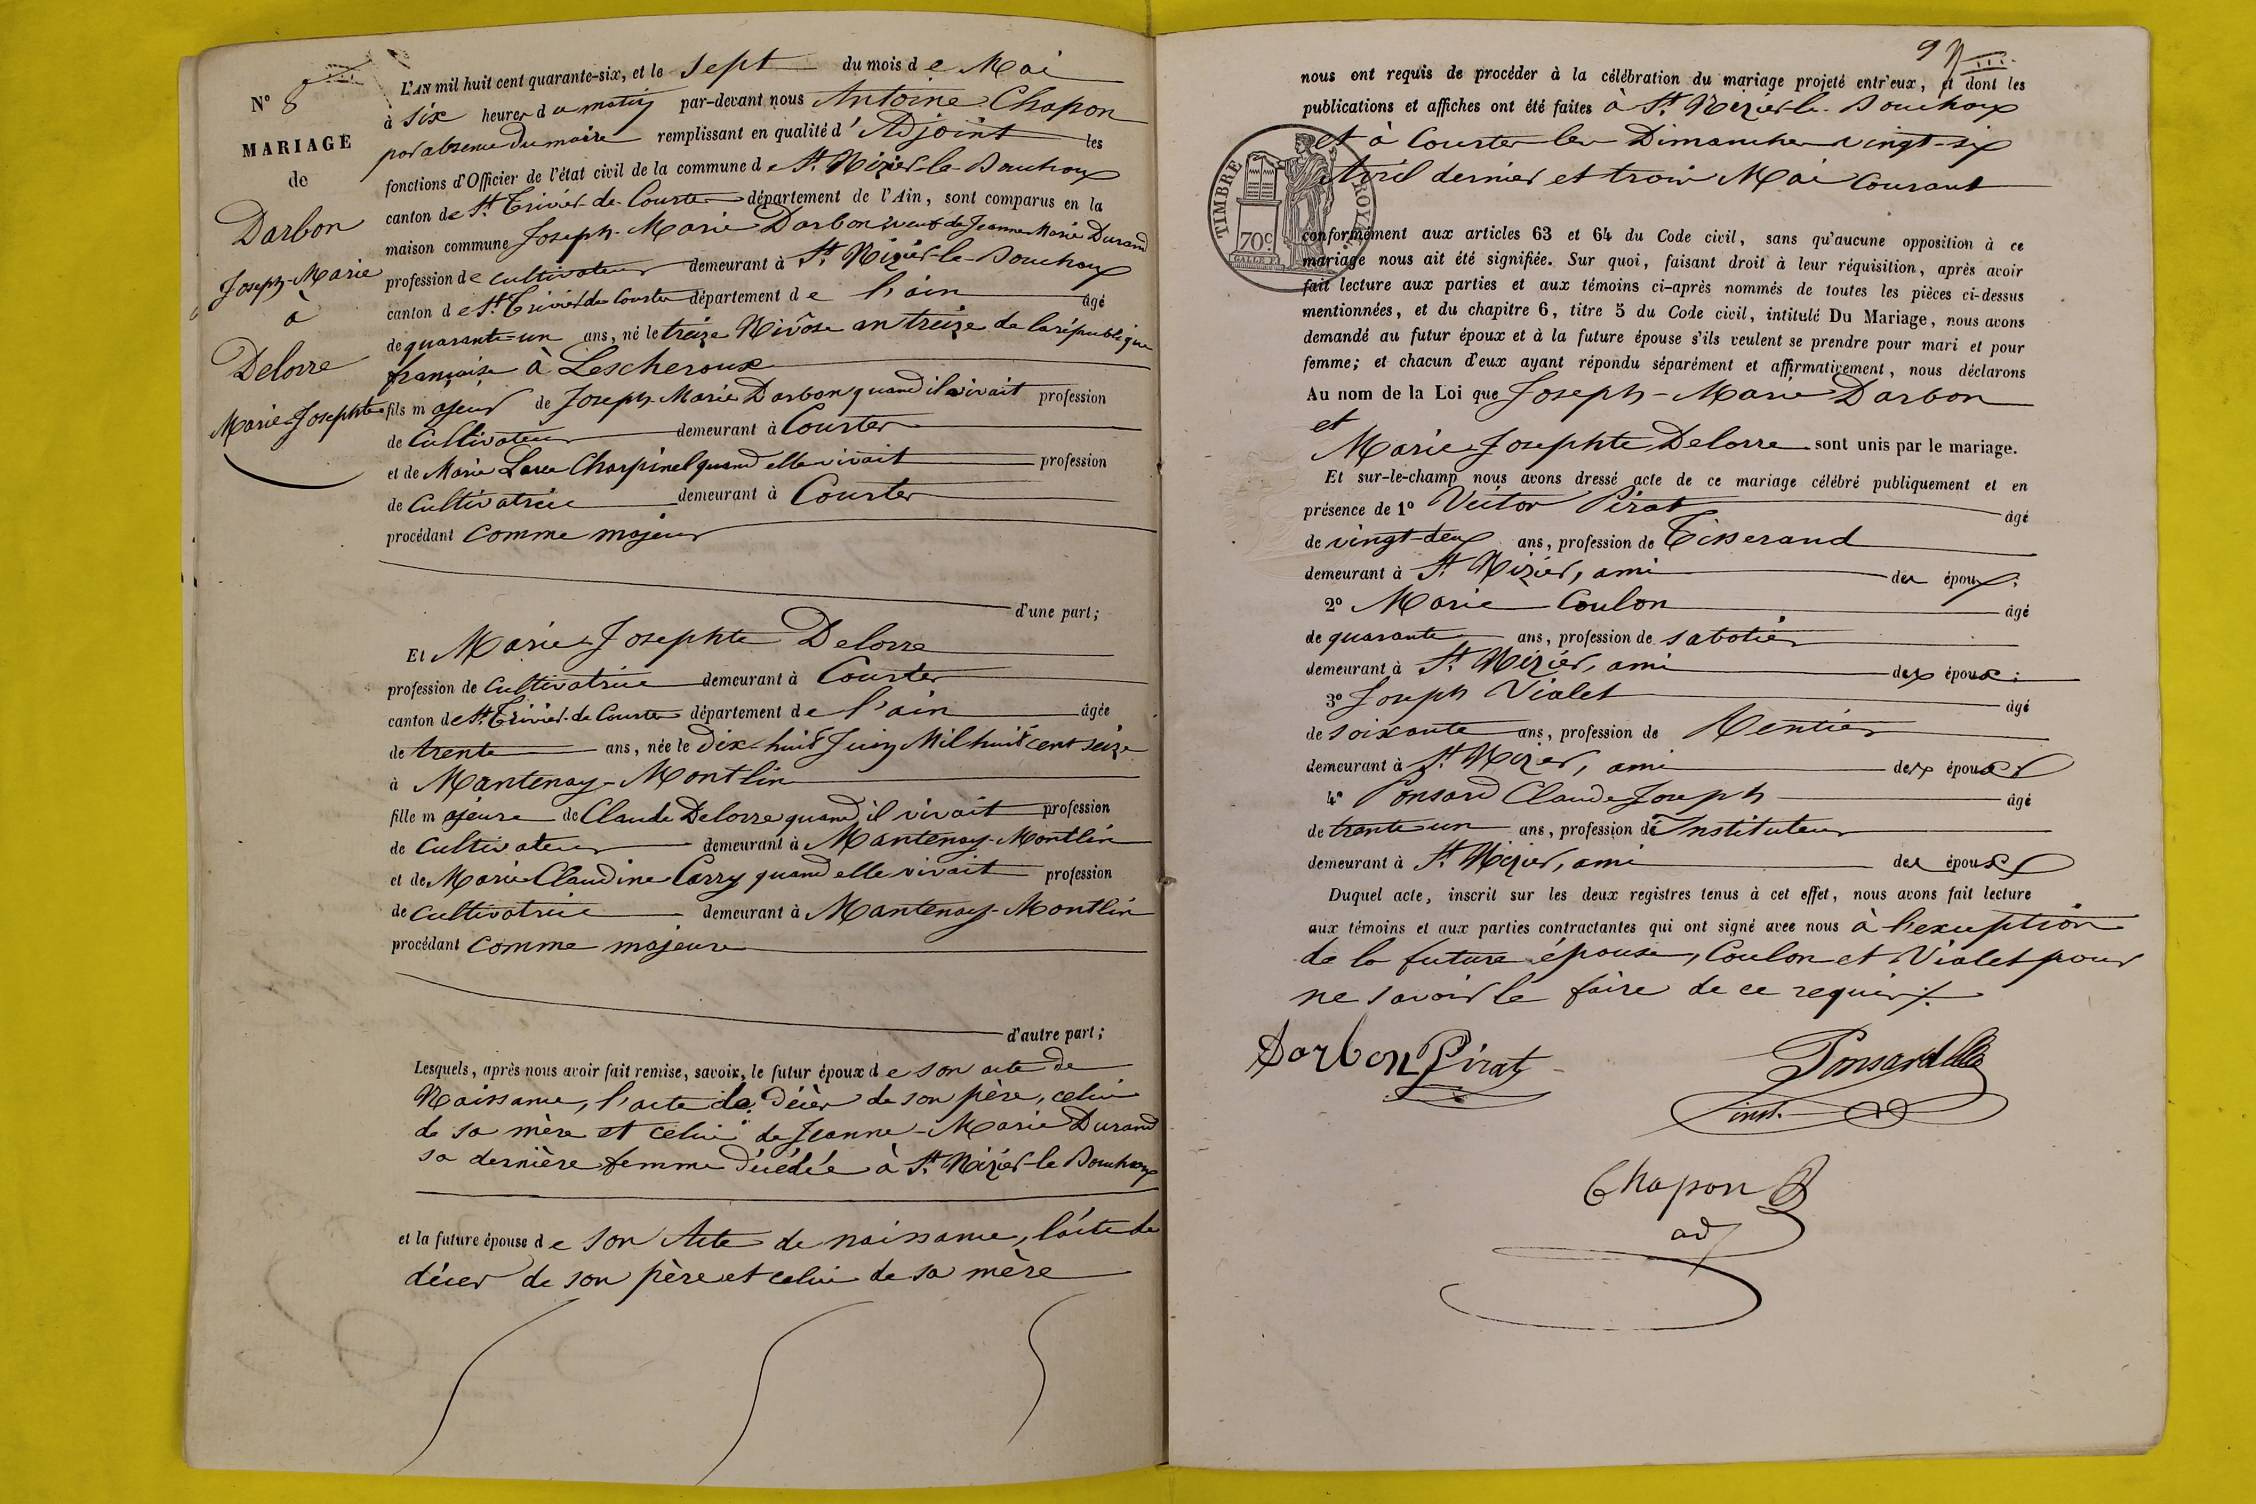 N° 8
MARIAGE
de
Darbon
Joseph-Marie
à
Delorre
Marie-Josephte
L'AN mil huit cent quarante-six, et le sept du mois de Mai
à six heures du matin par-devant nous Antoine Chapon
par absence du maire remplissant en qualité d'Adjoint les
fonctions d'Officier de l'état civil de la commune de St Nizier-le-Bouchoux
canton de St Trivier-de-Courtes département de l'Ain, sont comparus en la
maison commune Joseph-Marie Darbon veuf de Jeanne Marie Durand
profession de cultivateur demeurant à St Nizier-le-Bouchoux
canton de St Trivier de Courtes département de l'ain âgé
de quarante-un ans, né le treize Nivôse an treize de la république
française à Lescheroux
fils majeur de Joseph Marie Darbon quand il vivait profession
de Cultivateur demeurant à Courtes
et de Marie Charpinel quand elle vivait profession
de Cultivatrice demeurant à Courtes
procédant comme majeur
d'une part;
Et Marie-Josephte Delorre
profession de Cultivatrice demeurant à Courtes
canton de St Trivier-de-Courtes département de l'ain âgée
de trente ans, née le Dix-huit Juin Mil huit cent seize
à Mantenay-Montlin
fille majeure de Claude Delorre quand il vivait profession
de Cultivateur demeurant à Mantenay-Montlin
et de Marie Claudine Carry quand elle vivait profession
de Cultivatrice demeurant à Mantenay-Montlin
procédant comme majeure
d'autre part;
Lesquels, après nous avoir fait remise, savoir, le futur époux de son acte de
Naissance, l'acte de décès de son père, celui
de sa mère et celui de Jeanne-Marie Durand
sa dernière femme décédée à St Nizier-le-Bouchoux
et la future épouse de son Acte de naissance, l'acte de
décès de son père et celui de sa mère
9
nous ont requis de procéder à la célébration du mariage projeté entr'eux, et dont les
publications et affiches ont été faites à St Nizier-le-Bouchoux
et à Courtes les Dimanches vingt-six
Avril dernier et trois Mai courant
TIMBRE ROYAL
70c
conformément aux articles 63 et 64 du Code civil, sans qu'aucune opposition à ce
mariage nous ait été signifiée. Sur quoi, faisant droit à leur réquisition, après avoir
fait lecture aux parties et aux témoins ci-après nommés de toutes les pièces ci-dessus
mentionnées, et du chapitre 6, titre 5 du Code civil, intitulé Du Mariage, nous avons
demandé au futur époux et à la future épouse s'ils veulent se prendre pour mari et pour
femme; et chacun d'eux ayant répondu séparément et affirmativement, nous déclarons
Au nom de la Loi que Joseph-Marie Darbon
et
Marie-Josephte Delorre sont unis par le mariage.
Et sur-le-champ nous avons dressé acte de ce mariage célébré publiquement et en
présence de 1° Victor Pirat âgé
de vingt-deux ans, profession de Tisserand
demeurant à St Nizier, ami des époux;
2° Marie Coulon âgé
de quarante ans, profession de sabotier
demeurant à St Nizier, ami des époux;
3° Joseph Vialet âgé
de soixante ans, profession de Rentier
demeurant à St Nizier, ami des époux
4° Ponsard Claude Joseph âgé
de trente un ans, profession d'Instituteur
demeurant à St Nizier, ami des époux
Duquel acte, inscrit sur les deux registres tenus à cet effet, nous avons fait lecture
aux témoins et aux parties contractantes qui ont signé avec nous à l'exception
de la future épouse, Coulon et Vialet pour
ne savoir le faire de ce requis
Darbon Pirat Ponsard
inst.
Chapon
adj